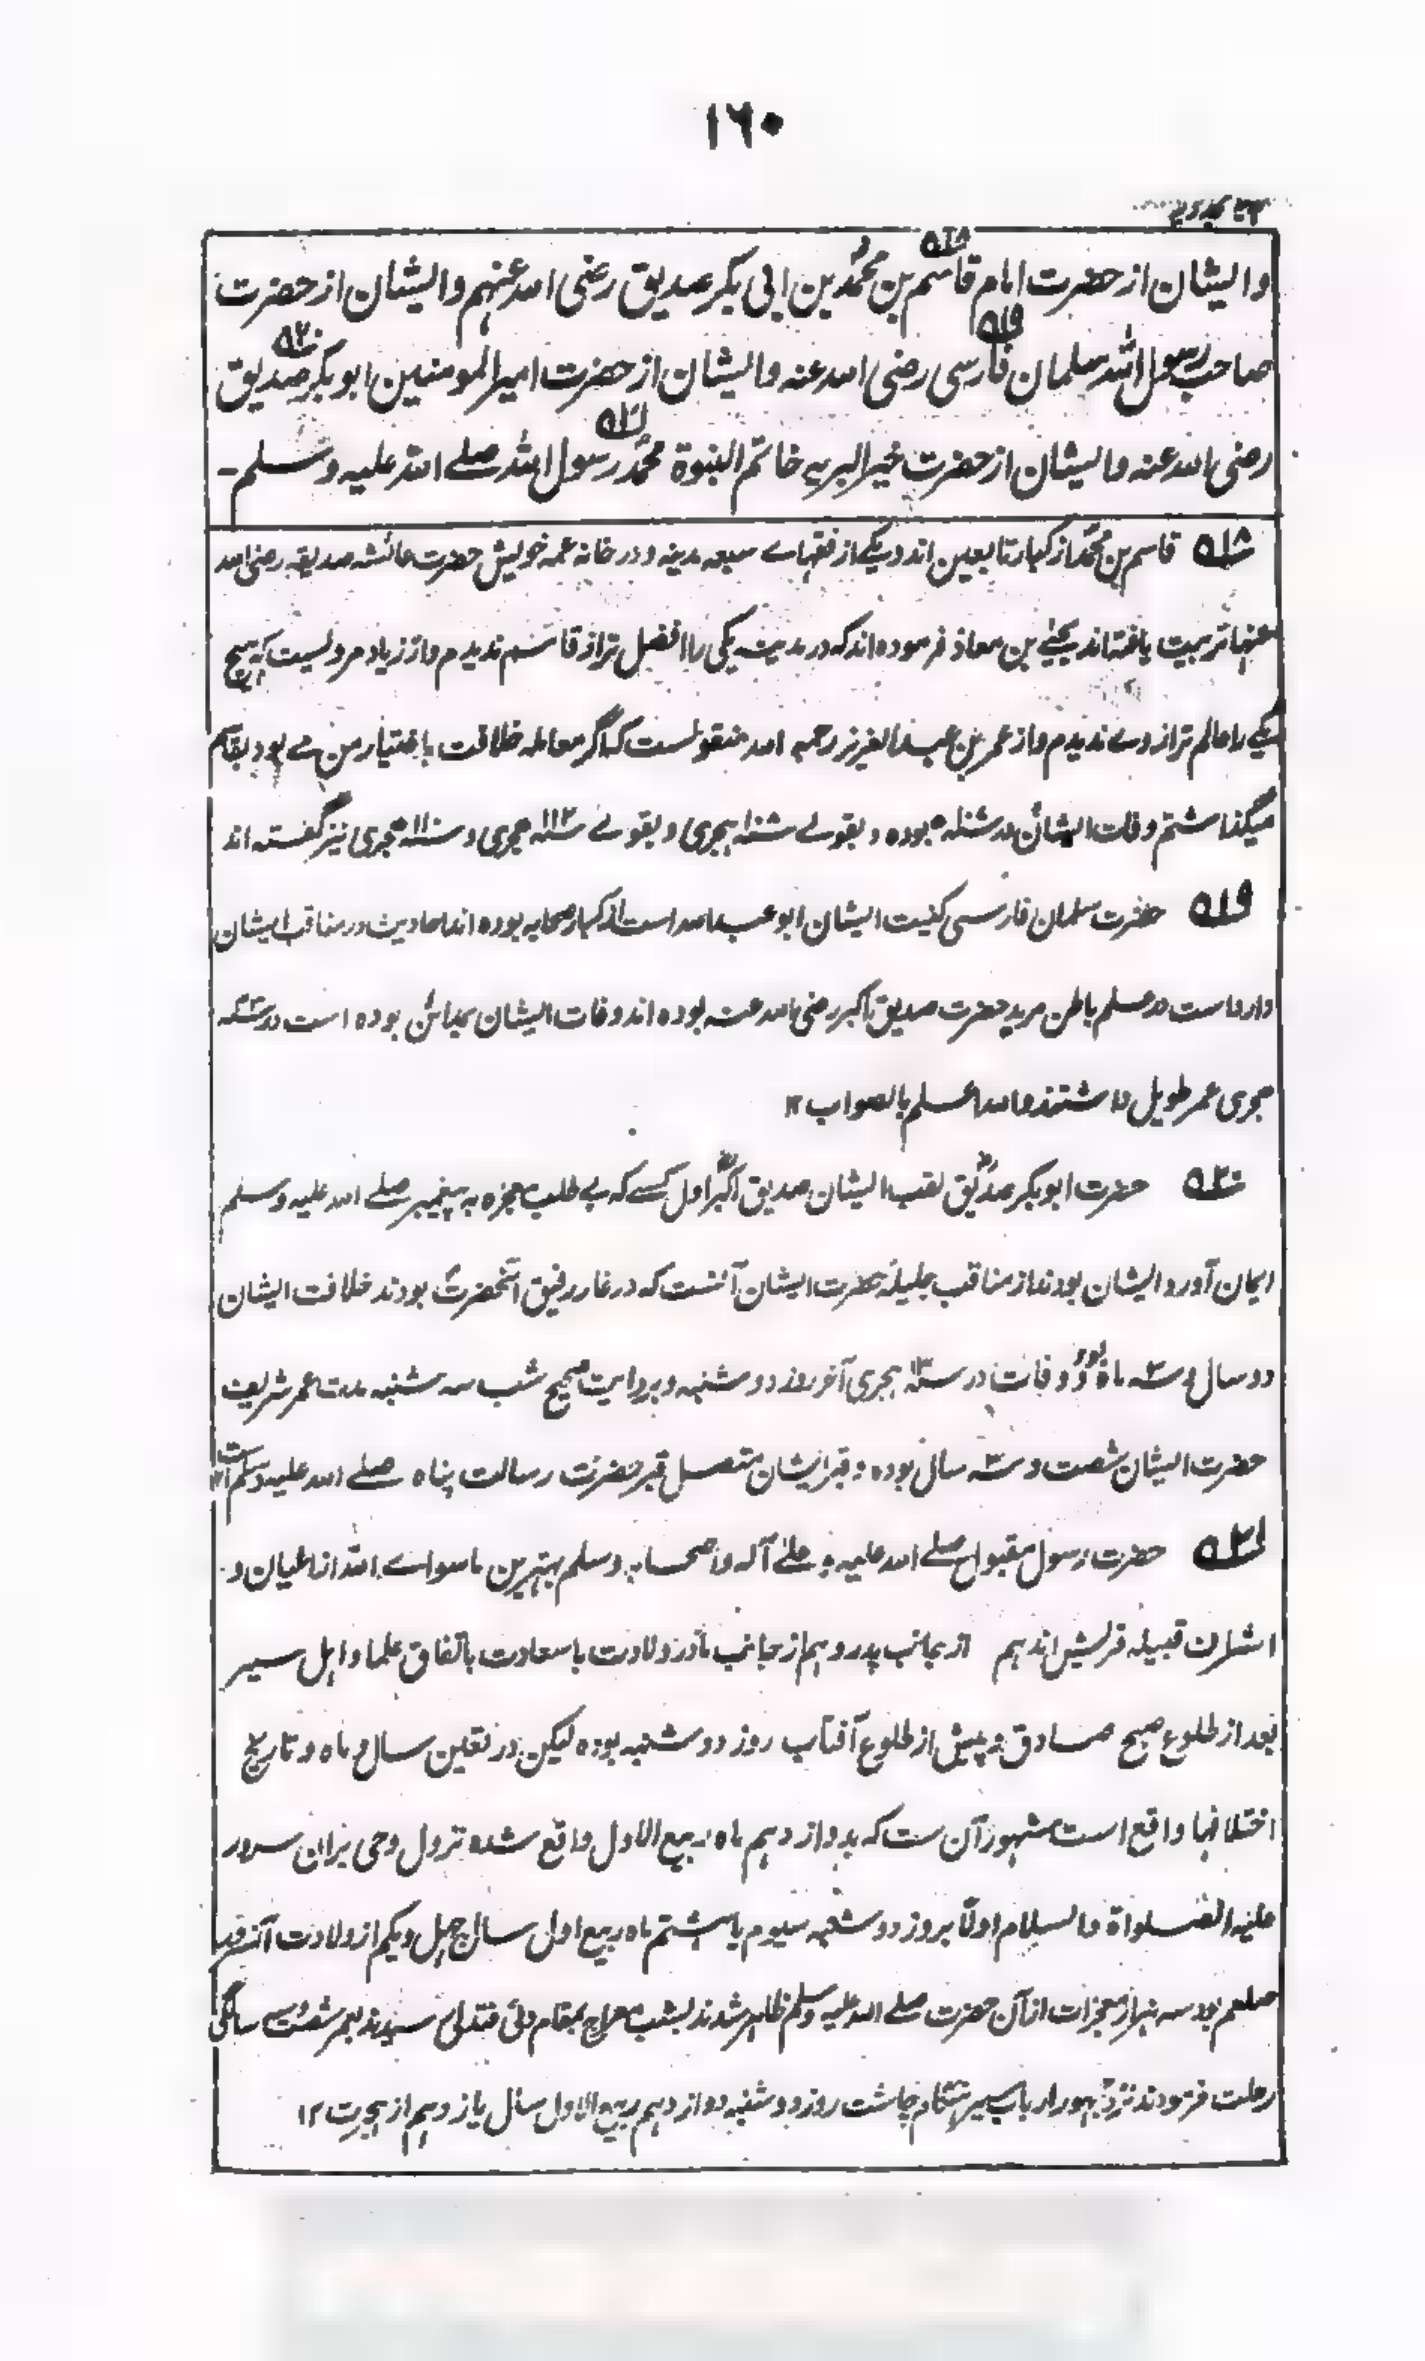 ۱۶۰
وایشان از حضرت امام قاسم ۱۸ بن محمد بن ابی بکر صدیق رضی الله عنهم وایشان از حضرت
صاحب رسول الله سلمان فارسی ۱۹ رضی الله عنه وایشان از حضرت امیر المومنین ابوبکر صدیق ۲۰
رضی الله عنه وایشان از حضرت خیر البریه خاتم النبوة محمد ۲۱ رسول الله صلے الله علیه وسلم ـ
۱۸ قاسم بن محمد از کبار تابعین اند و یکے از فقهاے سبعه مدینه و در خانه عمه خویش حضرت عائشه صدیقه رضی الله
عنها تربیت یافته اند یحیٰے بن معاذ فرموده اند که در مدینه یکی را افضل تر از قاسم ندیدم و از زیاد مرویست که هیچ
یکے را عالم تر از وے ندیدم و از عمر بن عبد العزیز رحمه الله منقولست که اگر معامله خلافت باختیار من مے بود بقاسم
میگذاشتم وفات ایشان در بوده و بقولے هجری و بقولے ۱۱۲ هجری و هجری نیز گفته اند
۱۹ حضرت سلمان فارسی کنیت ایشان ابو عبد الله است از کبار صحابه بوده اند احادیث در مناقب ایشان
وارد است در علم باطن مرید حضرت صدیق اکبر رضی الله عنه بوده اند وفات ایشان بمدائن بوده است در
هجری عمر طویل داشتند والله اعلم بالصواب ۱۲
۲۰ حضرت ابوبکر صدیق لقب ایشان صدیق اکبر اول کسے که بے طلب معجزه به پیغمبر صلے الله علیه وسلم
ایمان آورد ایشان بودند از مناقب جلیله حضرت ایشان آنست که در غار رفیق آنحضرت بودند خلافت ایشان
دو سال و سه ماه بود و وفات در ۱۳ هجری آخر روز دوشنبه و بروایت صحیح شب سه شنبه مدت عمر شریف
حضرت ایشان شصت و سه سال بوده و قبر ایشان متصل قبر حضرت رسالت پناه صلے الله علیه وسلم است ۱۲
۲۱ حضرت رسول مقبول صلے الله علیه و علےٰ آله واصحابه وسلم بهترین ماسواے الله از اعیان و
اشراف قبیله قریش اند هم از جانب پدر و هم از جانب مادر ولادت باسعادت باتفاق علما و اهل سیر
بعد از طلوع صبح صادق و پیش از طلوع آفتاب روز دوشنبه بوده لیکن در تعین سال و ماه و تاریخ
اختلافها واقع است مشهور آن ست که بدوازدهم ماه ربیع الاول واقع شده نزول وحی بران سرور
علیه الصلواة والسلام اولاً بروز دوشنبه سیوم یا هشتم ماه ربیع اول سال چهل و یکم از ولادت
صلعم بود سه هزار معجزات از آن حضرت صلے الله علیه وسلم ظاهر شدند بشب معراج بمقام دنی فتدلی رسیدند بعمر شصت و سه سالگی
رحلت فرمودند نزد جمهور ارباب سیر هنگام چاشت روز دوشنبه دوازدهم ربیع الاول سال یازدهم از هجرت ۱۲